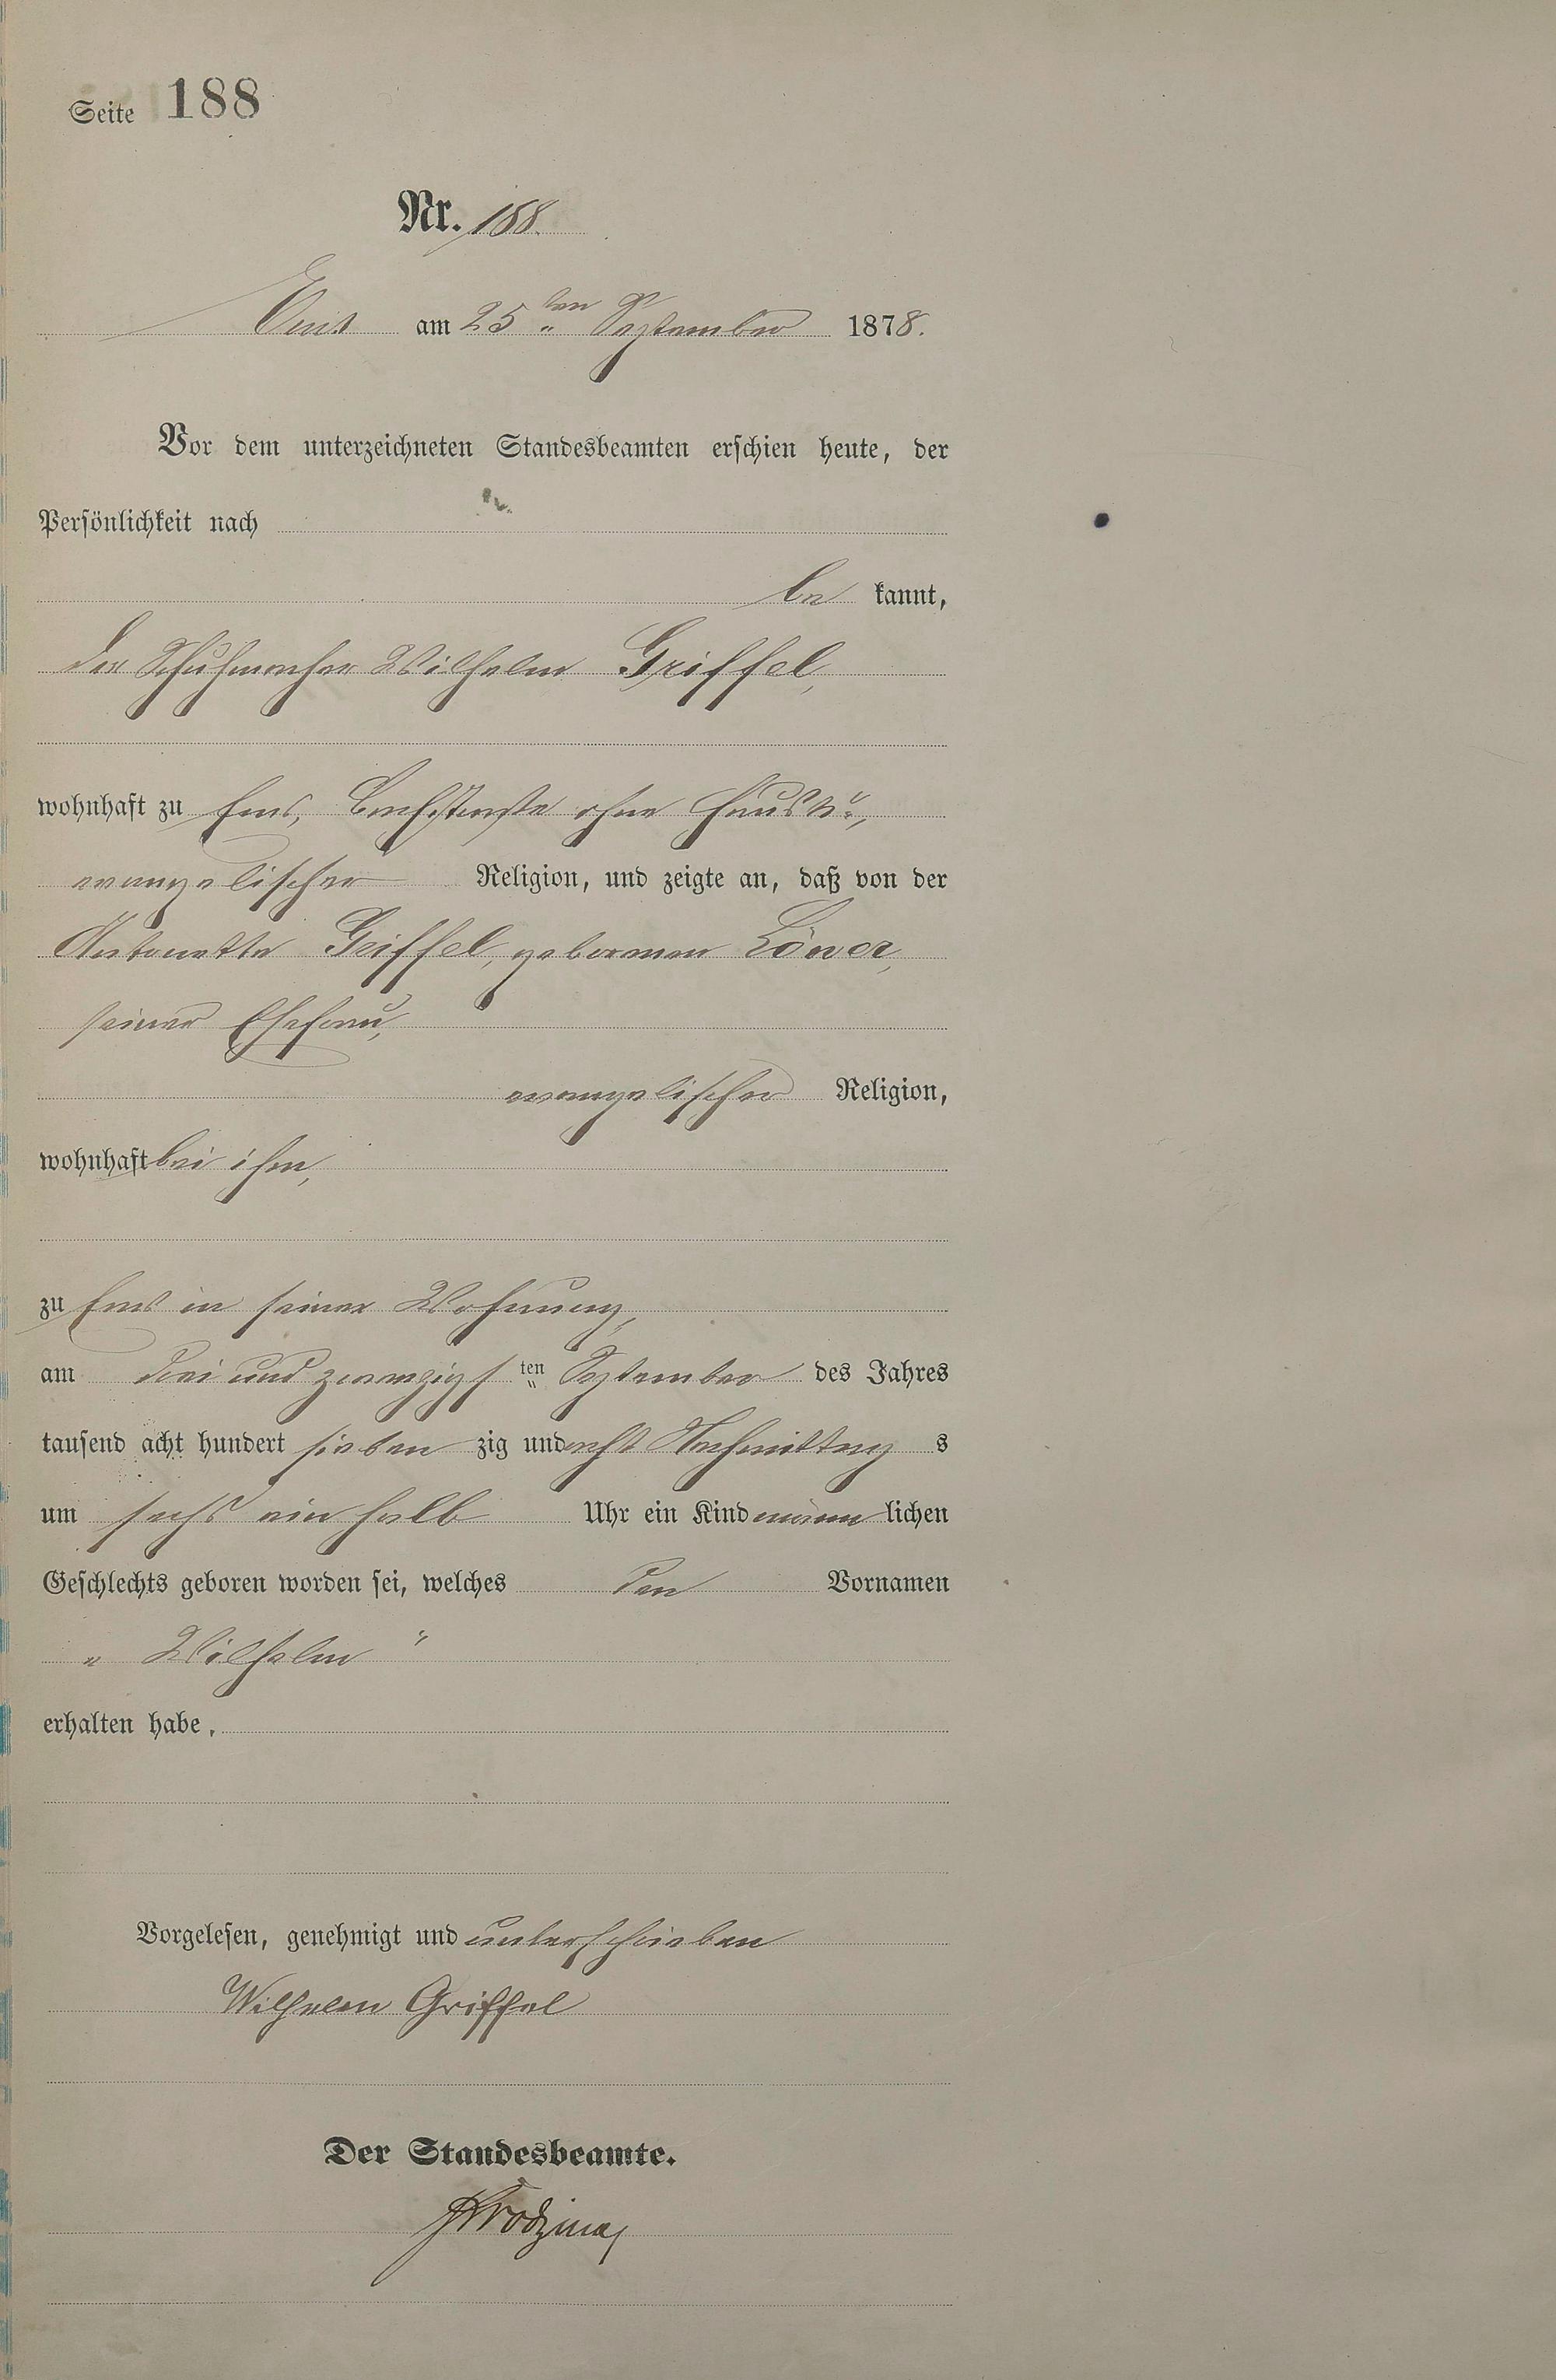 Seite 188
Nr. 188.
Ems am 25ten September 1878.
Vor dem unterzeichneten Standesbeamten erschien heute, der
Persönlichkeit nach
be kannt,
der Schuhmacher Wilhelm Griffel,
wohnhaft zu Ems, Bachstraße ohne Haus Nr.,
evangelischer Religion, und zeigte an, daß von der
Antonette Griffel, gebornen Löwer,
seiner Ehefrau,
evangelischer Religion,
wohnhaft bei ihm,
zu Ems in seiner Wohnung,
am drei und zwanzigsten September des Jahres
tausend acht hundert sieben zig und acht Nachmittag s
um sechs ein halb Uhr ein Kind männ lichen
Geschlechts geboren worden sei, welches den Vornamen
„ Wilhelm "
erhalten habe.
Vorgelesen, genehmigt und unterschrieben
Wilhelm Griffel
Der Standesbeamte.